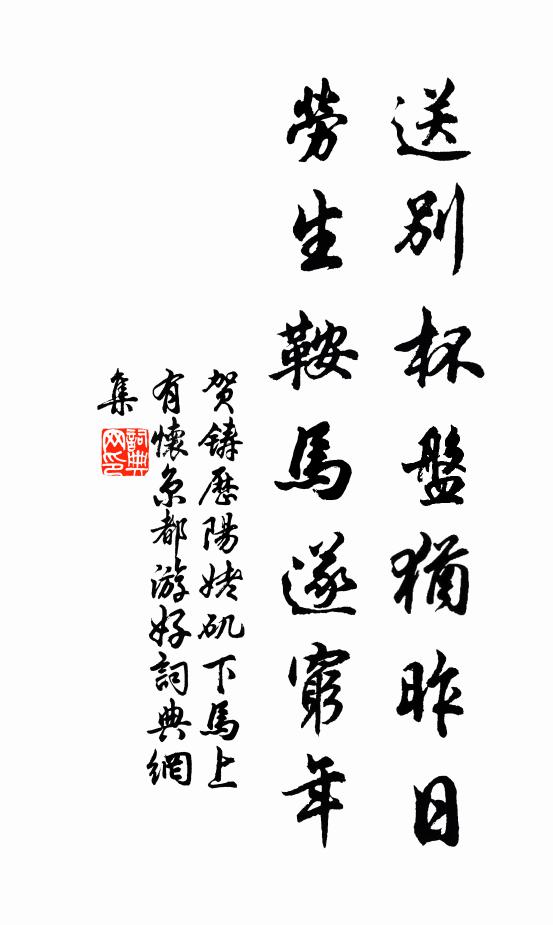 送別杯盤猶昨日
勞生鞍馬遂窮年
賀鑄歷陽姥矶下馬上
有懷京都游好詞典網
集
詞典
网印